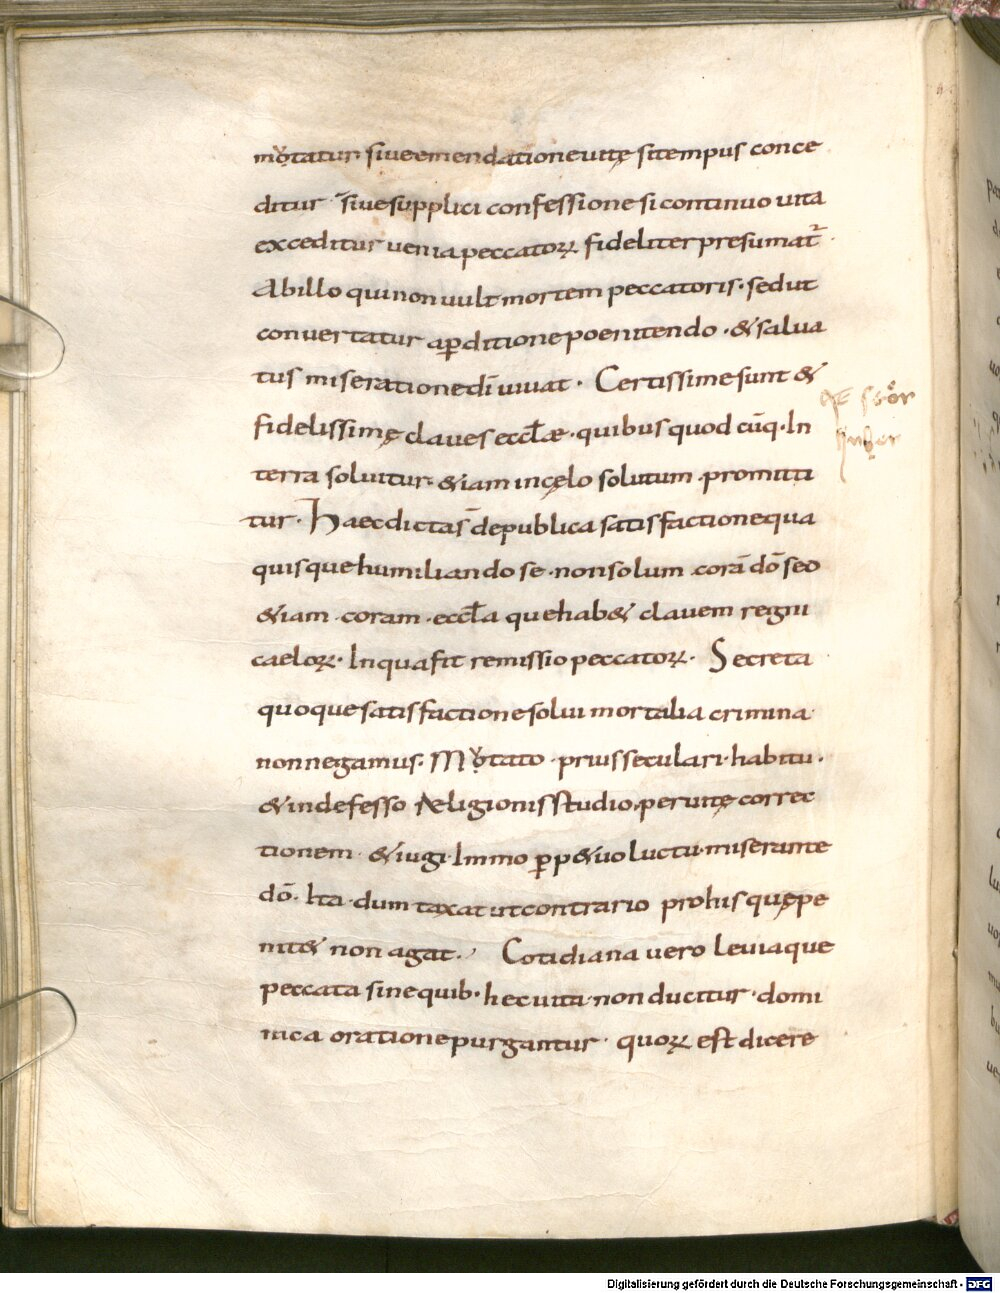 mọ̌tatur siue emendatione uitę si tempus conce
ditur siue supplici confessione si continuo uita
exceditur uenia peccatoꝝ fideliter presumat̃ .
Ab illo qui non uult mortem peccatoris · sed ut
conuertatur a ꝑditione poenitendo · & salua
tus miseratione dī uiuat · Certissime sunt &
fidelissimę claues eccłae · quibus quod cūq · In
terra soluitur · &iam in cęlo solutum · promitti
tur · Haec dicta s̄ de publica satisfactione qua
quisque humiliando se · non solum corā dō seo
&iam · coram · eccła que hab& clauem regni
caeloꝝ · In qua fit remissio peccatoꝝ · Secreta
quoque satisfactione solui mortalia crimina
non negamus · Mọ̌tato · prius seculari · habitu ·
& indefesso Religionis studio · per uitę correc
tionem · & iugi · Immo ꝑp&uo luctu · miserante
dō · Ita · dum taxat ut contrario pro his quę pe
nit& non agat · Cotidiana uero leuiaque
peccata sine quib · hec uita · non ducitur · domi
nica oratione purgantur · quoꝝ est dicere
Digitalisierung gefördert durch die Deutsche Forschungsgemeinschaft - DFG